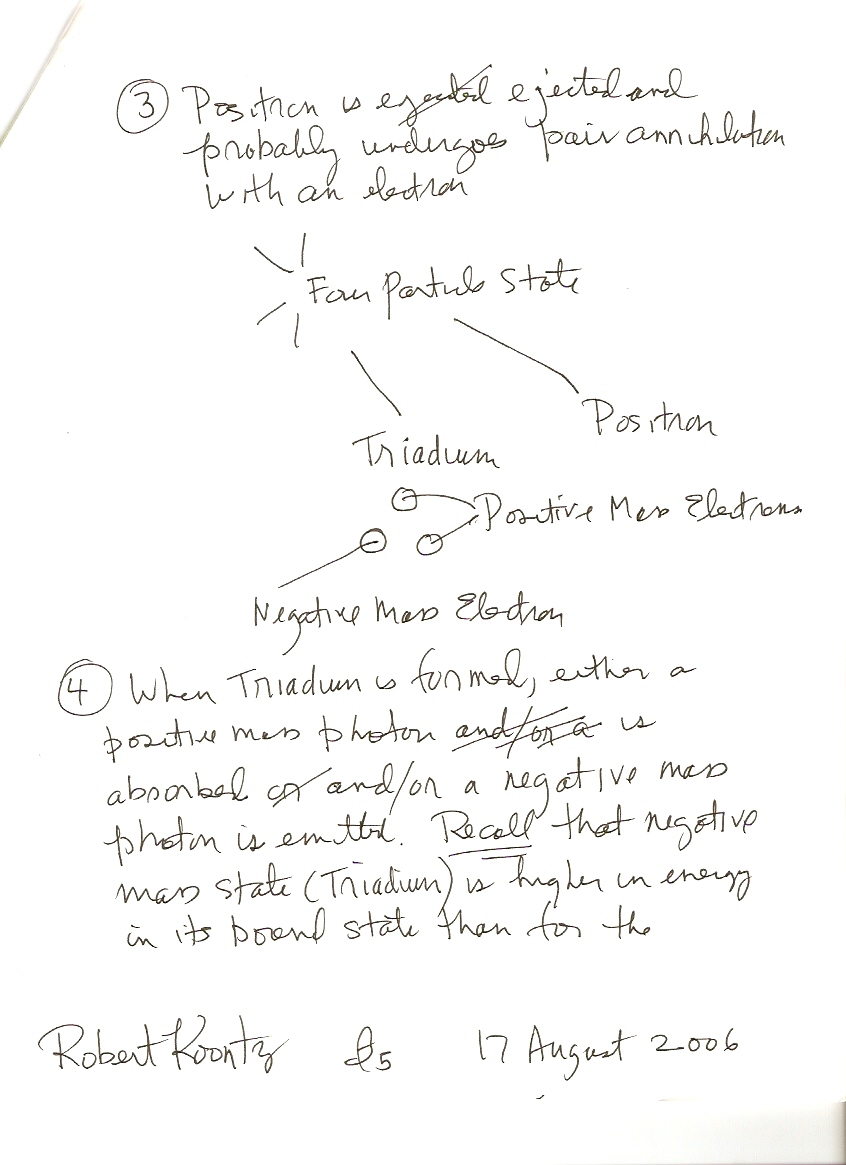 ③ Positron is ejected ejected and
probably undergoes pair annihilation
with an electron
Four Particle State
Positron
Triadium
Positive Mass Electrons
Negative Mass Electron
④ When Triadium is formed, either a
positive mass photon and/or a is
absorbed or and/or a negative mass
photon is emitted. Recall that negative
mass state (Triadium) is higher in energy
in its bound state than for the
Robert Koontz 17 August 2006